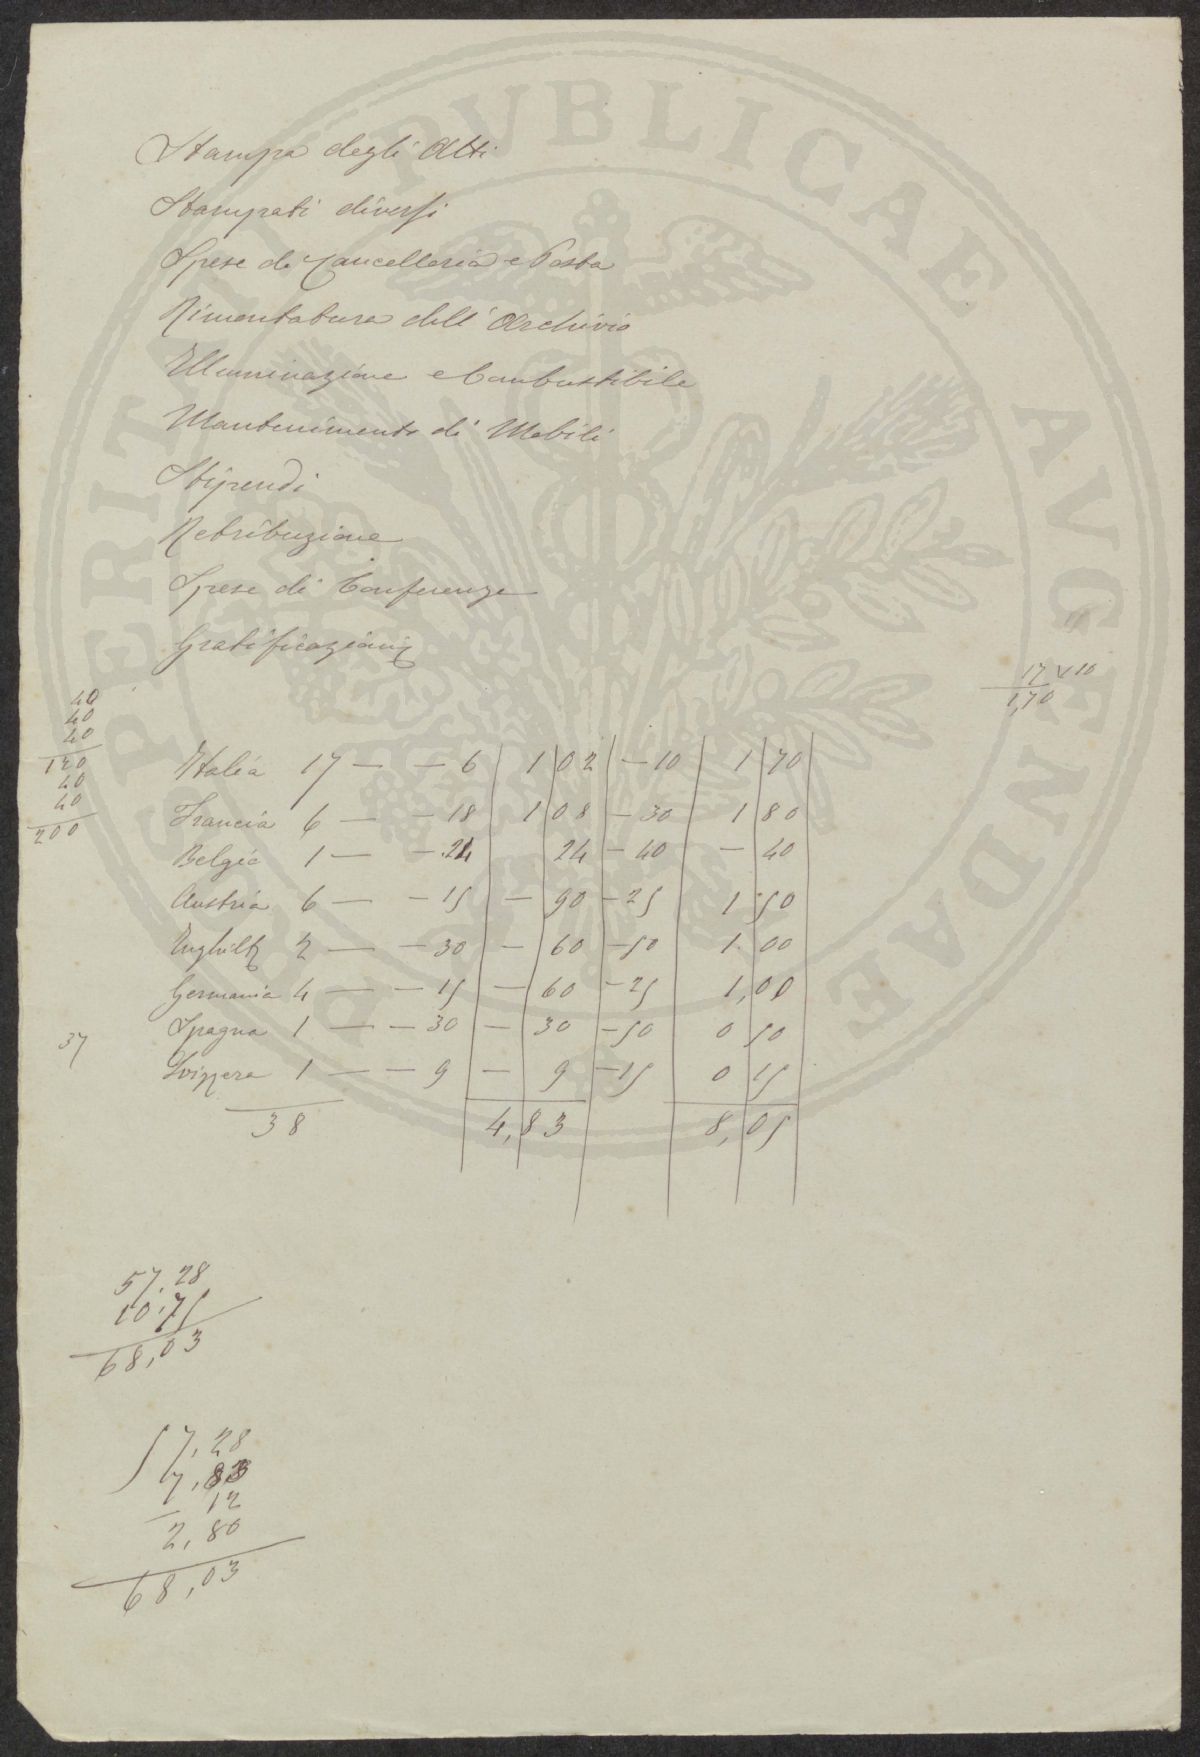 PROSPERITATI PVBLICAE AVGENDAE
Stampa degli Atti
Stampati diversi
Spese di Cancelleria e Posta
Rimontatura dell' Archivio
Illuminazione e Combustibile
Mantenimento di Mobili
Stipendi
Retribuzione
Spese di Conferenze
Gratificazioni
17 x 10
1,70
40
40
40
120
40
40
200
Italia 17 — — 6 1 02 — 10 1 70
Francia 6 — — 18 1 08 — 30 1 80
Belgio 1 — — 24 24 — 40 — 40
Austria 6 — — 15 — 90 — 25 1 50
Inghilt 2 — — 30 — 60 — 50 1 00
Germania 4 — — 15 — 60 — 25 1,00
Spagna 1 — — 30 — 30 — 50 0 50
Svizzera 1 — — 9 — 9 — 15 0 15
37
38 4,83 8,05
57,28
10,75
68,03
57,28
7,83
— 12
2,80
68,03